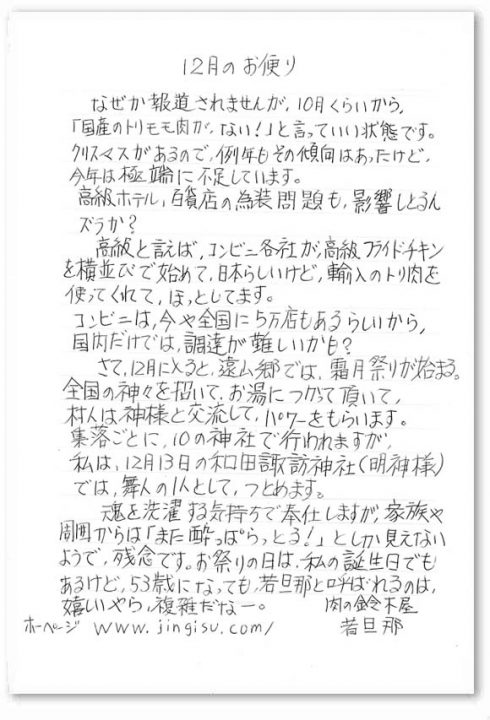 12月のお便り
なぜか報道されませんが、10月くらいから、
「国産のトリモモ肉が、ない！」と言っていい状態です。
クリスマスがあるので、例年もその傾向はあったけど、
今年は極端に不足しています。
高級ホテル、百貨店の為装問題も、影響しとるん
ズラか？
高級と言えば、コンビニ各社が、高級フライドチキン
を横並びで始めて、日本らしいけど、輸入のトリ肉を
使ってくれて、ほっとしてます。
コンビニは、今や全国に5万店もあるらしいから、
国内だけでは、調達が難しいかも？
さて、12月に入ると、遠山郷では、霜月祭りが始まる。
全国の神々を招いて、お湯につかって頂いて、
村人は神様と交流して、パワーをもらいます。
集落ごとに、10の神社で行われますが、
私は、12月13日の和田諏訪神社（明神様）
では、舞人の1人として、つとめます。
魂を洗濯する気持ちで奉仕しますが、家族や
周囲からは「また酔っぱらっとる！」としか見えない
ようで、残念です。お祭りの日は、私の誕生日でも
あるけど、53歳になっても、若旦那と呼ばれるのは、
嬉しいやら、複雑だなー。
肉の鈴木屋
ホームページ www.jingisu.com/ 若旦那